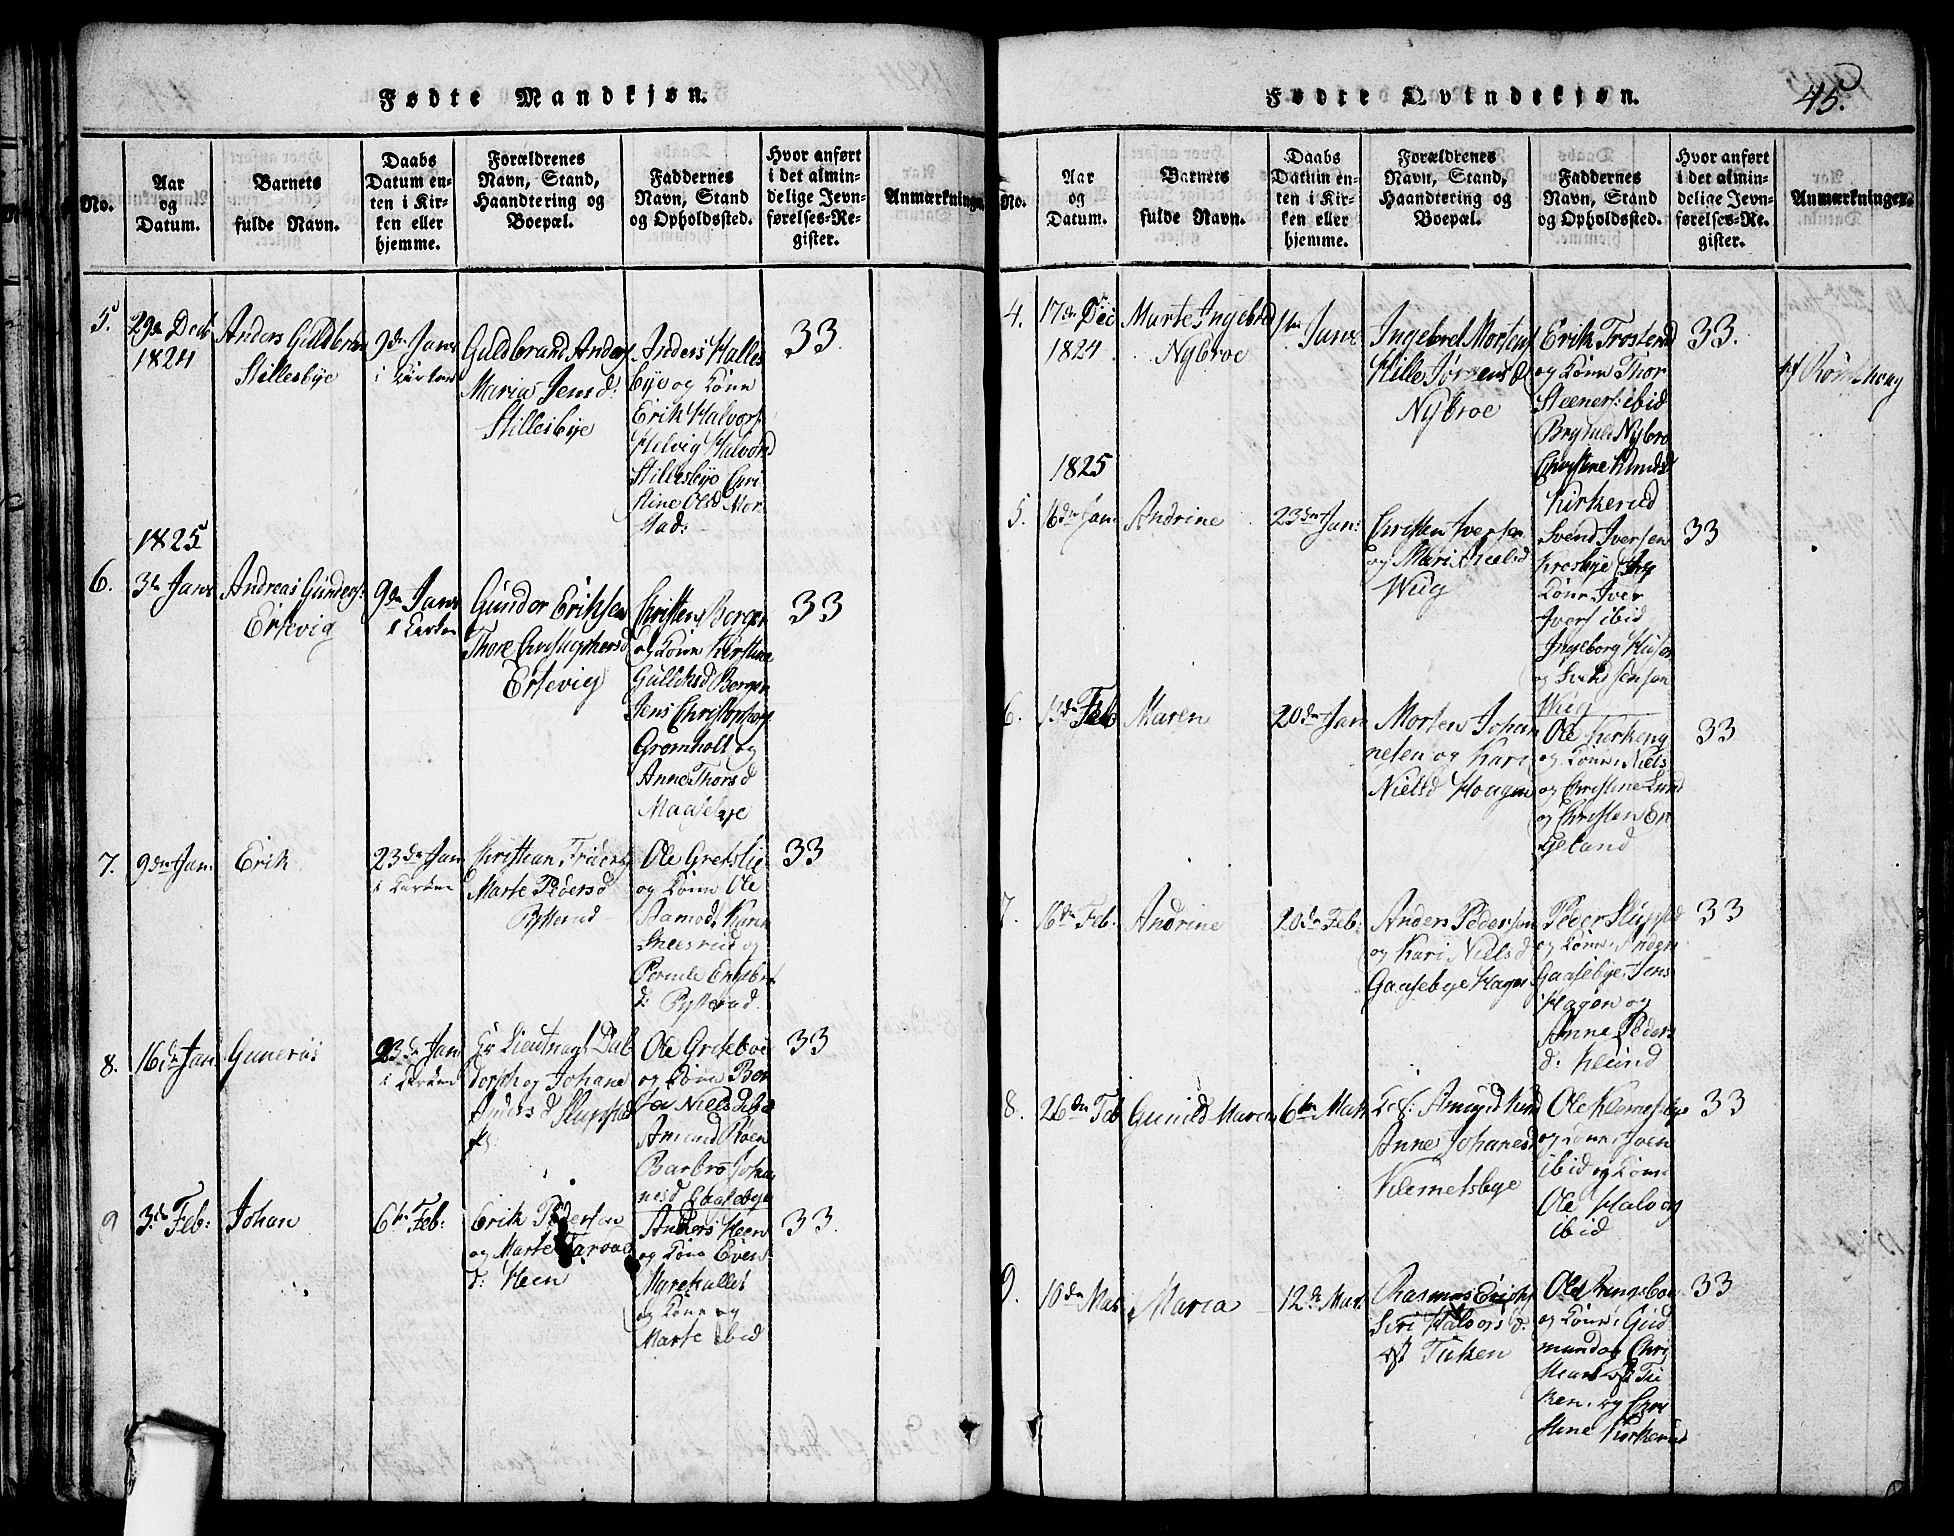 Fødte Mandkjøn.
No.
Aar
og
Datum.
Barnets
fulde Navn.
Daabs
Datum en-
ten i Kir-
ken eller
hjemme.
Forældrenes
Navn, Stand,
Haandtering og
Boepæl.
Faddernes
Navn, Stand
og Opholdssted.
Hvor anført
i det almin-
delige Jevn-
førelses-Re-
gister.
Anmærkninger.
5.
29de Decb
1824
Anders Guldbran
Stillesbye
9de Janv
i Kirken
Guldbrand Anders
Maria Jensd:
Stillesbye
Anders Halles
bye og Kone
Erik Halvors:
Helvig Halvord
Stillesbye Chri
stine Olsd Mor
stad:
33
1825
6.
3de Janv
Andreas Gunders:
Ertevig
9de Janv
i Kirken
Gunder Eriksen
Thore Christophersd
Ertevig
Christen Borgen
og Kone Kirstine
Gulliksd Borgen
Jens Christophers
Gromholt og
Anne Thorsd
Maasebye
33
7.
9de Jan:
Erik
23de Jan
i Kirken
Christian Frider
Marte Pedersd
Rysterud
Ole Gretslie
og Kone Ole
Aamodt Karen
Sneesrud og
Pernille Engebret
d: Rysterud.
33
8.
16de Jan
Gunerius
23de Jan
i Kirken
Lieutnant Dul
dorph og Johane
Andersd Slupsta
Ole Grikeboe
og Kone Ber
the Nielsd ibid
Amund Roen
Barbro Johan
nesd
33
9
3de Feb:
Johan
6te Feb:
Erik Pedersen
og Marte Tarvald
d: Heen
Anders Heen
og Kone Even
Myrehallet
og Kone og
Marte ibid
33.
Fødte Qvindekjøn.
45.
No.
Aar
og
Datum.
Barnets
fulde Navn.
Daabs
Datum en-
ten i Kir-
ken eller
hjemme.
Forældrenes
Navn, Stand,
Haandtering og
Boepæl.
Faddernes
Navn, Stand
og Opholdssted.
Hvor anført
i det almin-
delige Jevn-
førelses-Re-
gister.
Anmærkninger.
4.
17de Dec
1824
Marte Ingebred
Nybroe
1te Janv
Ingebret Mortens
Hille Jørgensd
Nybroe
Erik Trosterud
og Kone Thor
Steeners: ibid
Brynild Nybro
Christine Knudsd
Kirkerud
33.
1825
5.
16de Jan:
Andrine
23de Jan:
Christen Iversen
og Mari Axelsd
Wiig
Svend Iversen
Krosbye og
Kone Iver
Ivers ibid
Ingeborg
og Svend Jensen
Wiig
33
6.
13de Feb
Maren
20de Jan
Morten Johan
nesen og Kari
Nielsd Hougen
Ole Kirkeng
og Kone Niels
og Christine Lund
og Christen En
geland
33
7.
16de Feb:
Andrine
20de Feb:
Anders Pedersen
og Kari Nielsd
Gaasebye Hagen
Peder Slupstad
og Kone Anders
Gaasebye, Jens
Hagen og
Anne Peders
d:
33
8.
26de Feb
Gunild Maria
6te Mar
Amund
Anne Johanesd
Klemetsbye
Ole Klemetsbye
og Kone, Joen
ibid og Kone
Ole Halvors
ibid
33
9.
10de Mar
Maria
12te Mar.
Rasmus Erichs
Siri Halvors d:
Tuken
Ole Ringsboe
og Kone, Gud
mund og Chri
Tu
ken, og Chri
stine Kirkerud
33